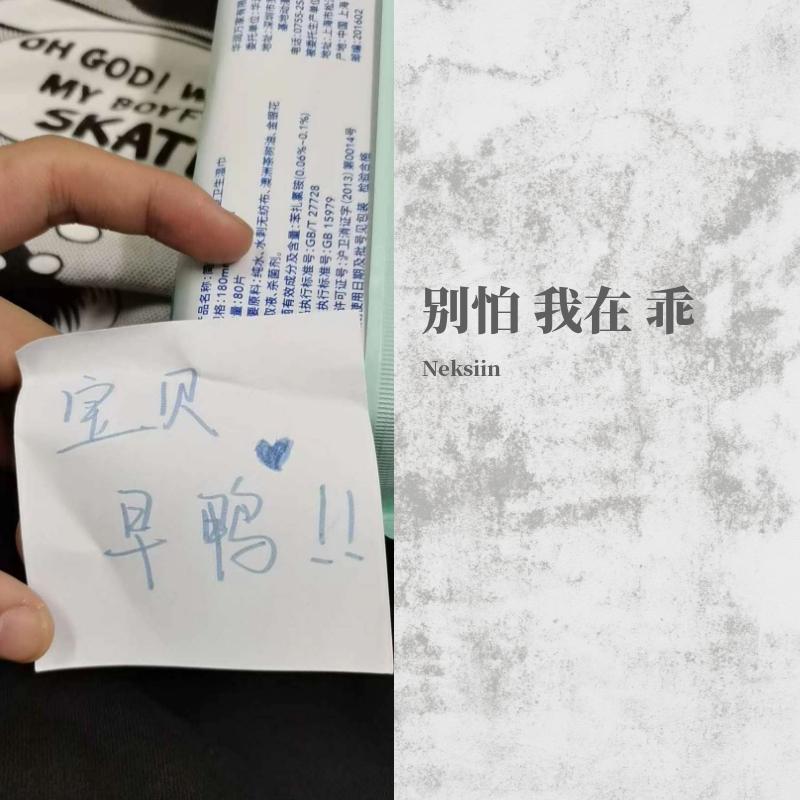 OH GOD! W
MY BOYF
SKAT
华润万家有限
电话:0755-25
产地:中国 上海
邮编:201602
卫生湿巾
量:80片
要原料:纯水、水刺无纺布、澳洲茶树油、金银花
取液、杀菌剂。
有效成分及含量:苯扎氯铵(0.06%~0.1%)
执行标准号:GB/T 27728
执行标准号:GB 15979
许可证号:沪卫消证字(2013)第0014号
使用日期及批号见包装 检验合格
宝贝
早鸭!!
别怕 我在 乖
Neksiin